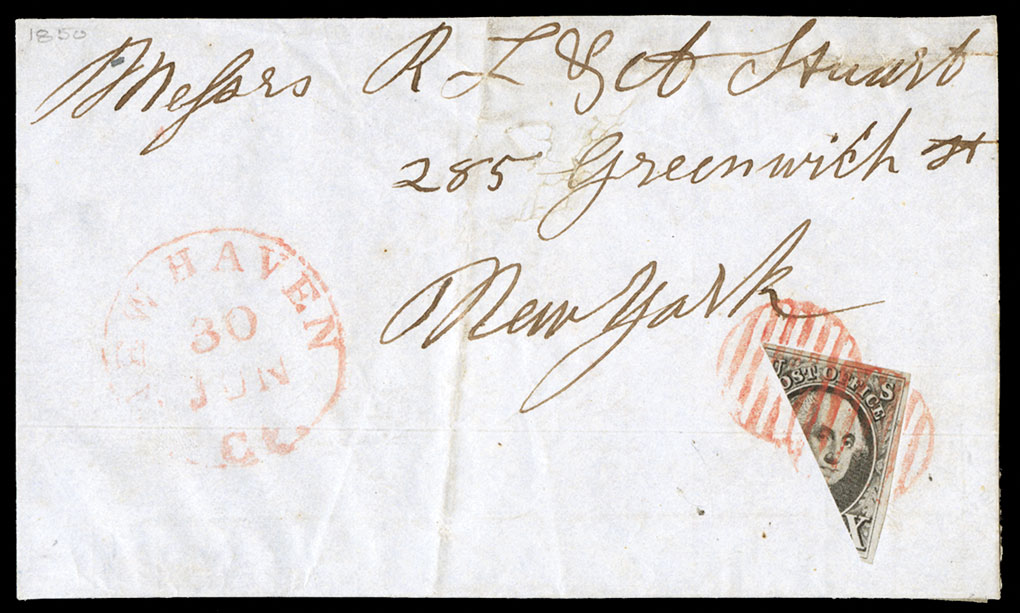 1850
Messrs R L & A Stuart
285 Greenwich St
New York
NEW HAVEN
30
JUN
Ct.
U S
POST OFFICE
X